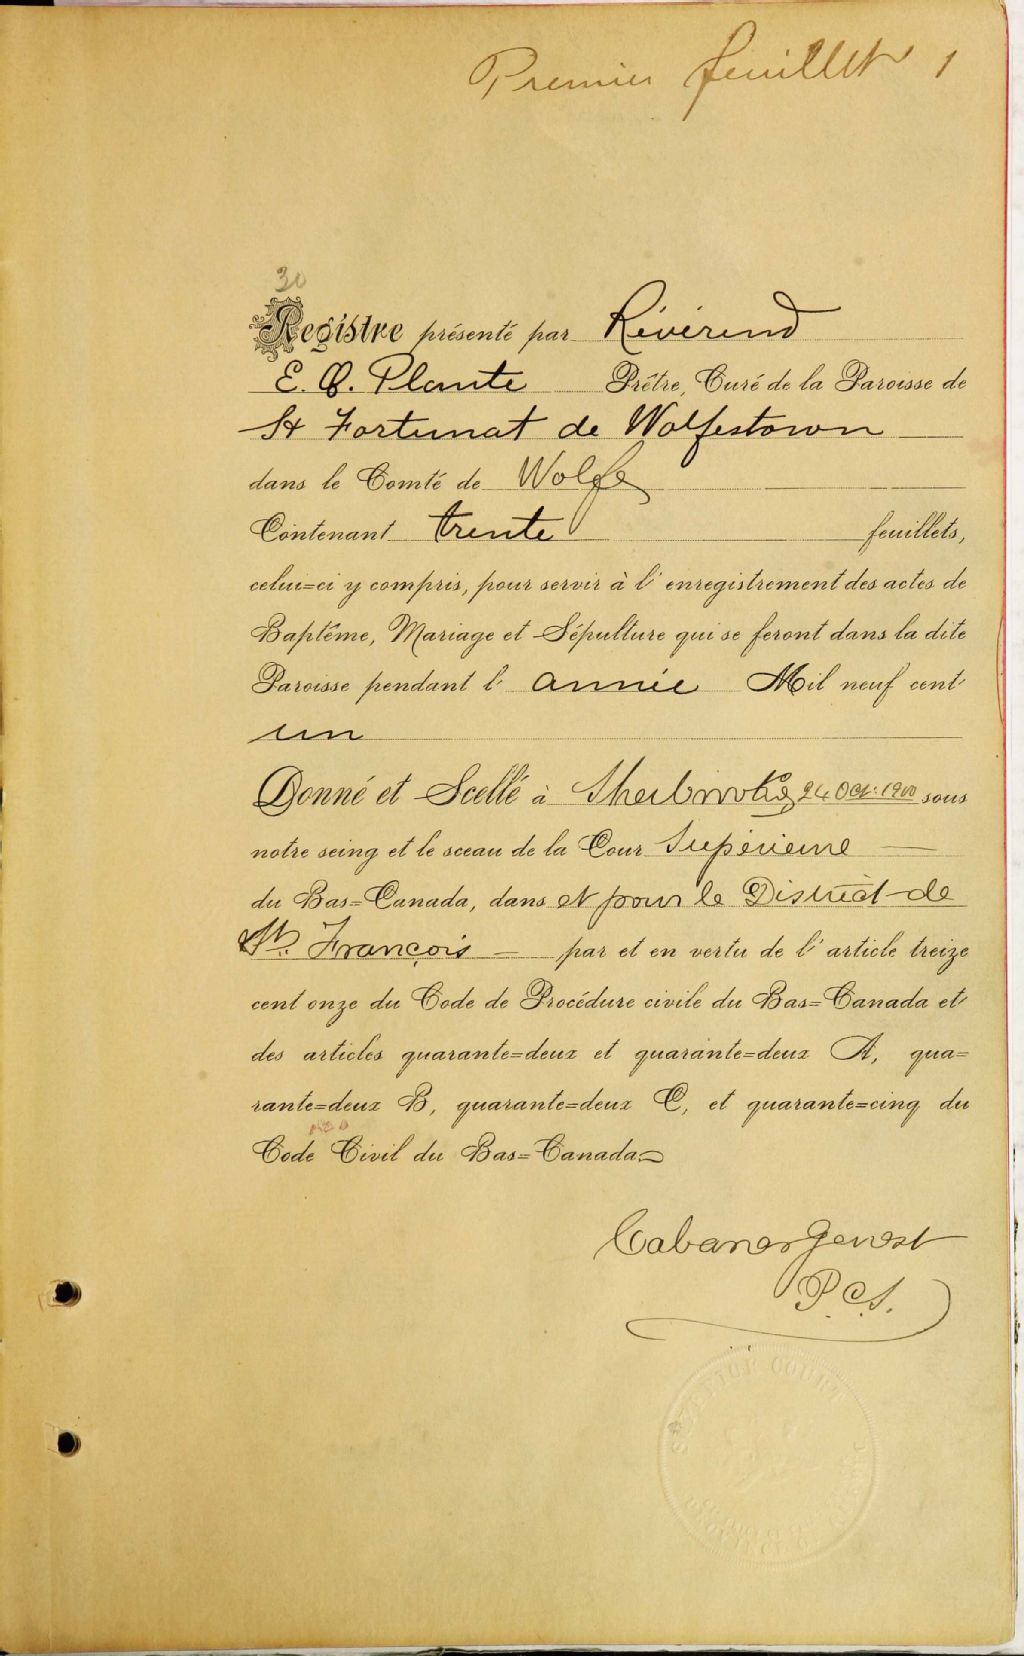 Premier feuillet 1
30
Registre présenté par Révérend
E. O. Plante Prêtre, Curé de la Paroisse de
St Fortunat de Wolfestown
dans le Comté de Wolfe
Contenant trente feuillets,
celui=ci y compris, pour servir à l'enregistrement des actes de
Baptême, Mariage et Sépulture qui se feront dans la dite
Paroisse pendant l'année Mil neuf cent
un
Donné et Scellé à Sherbrooke, 24 Oct: 1900 sous
notre seing et le sceau de la Cour Supérieure
du Bas=Canada, dans et pour le District de
St. François par et en vertu de l'article treize
cent onze du Code de Procédure civile du Bas=Canada et
des articles quarante=deux et quarante=deux A, qua=
rante=deux B, quarante=deux C, et quarante=cinq du
Code Civil du Bas=Canada
Cabana & Genest
P.C.S.
SUPERIOR COURT